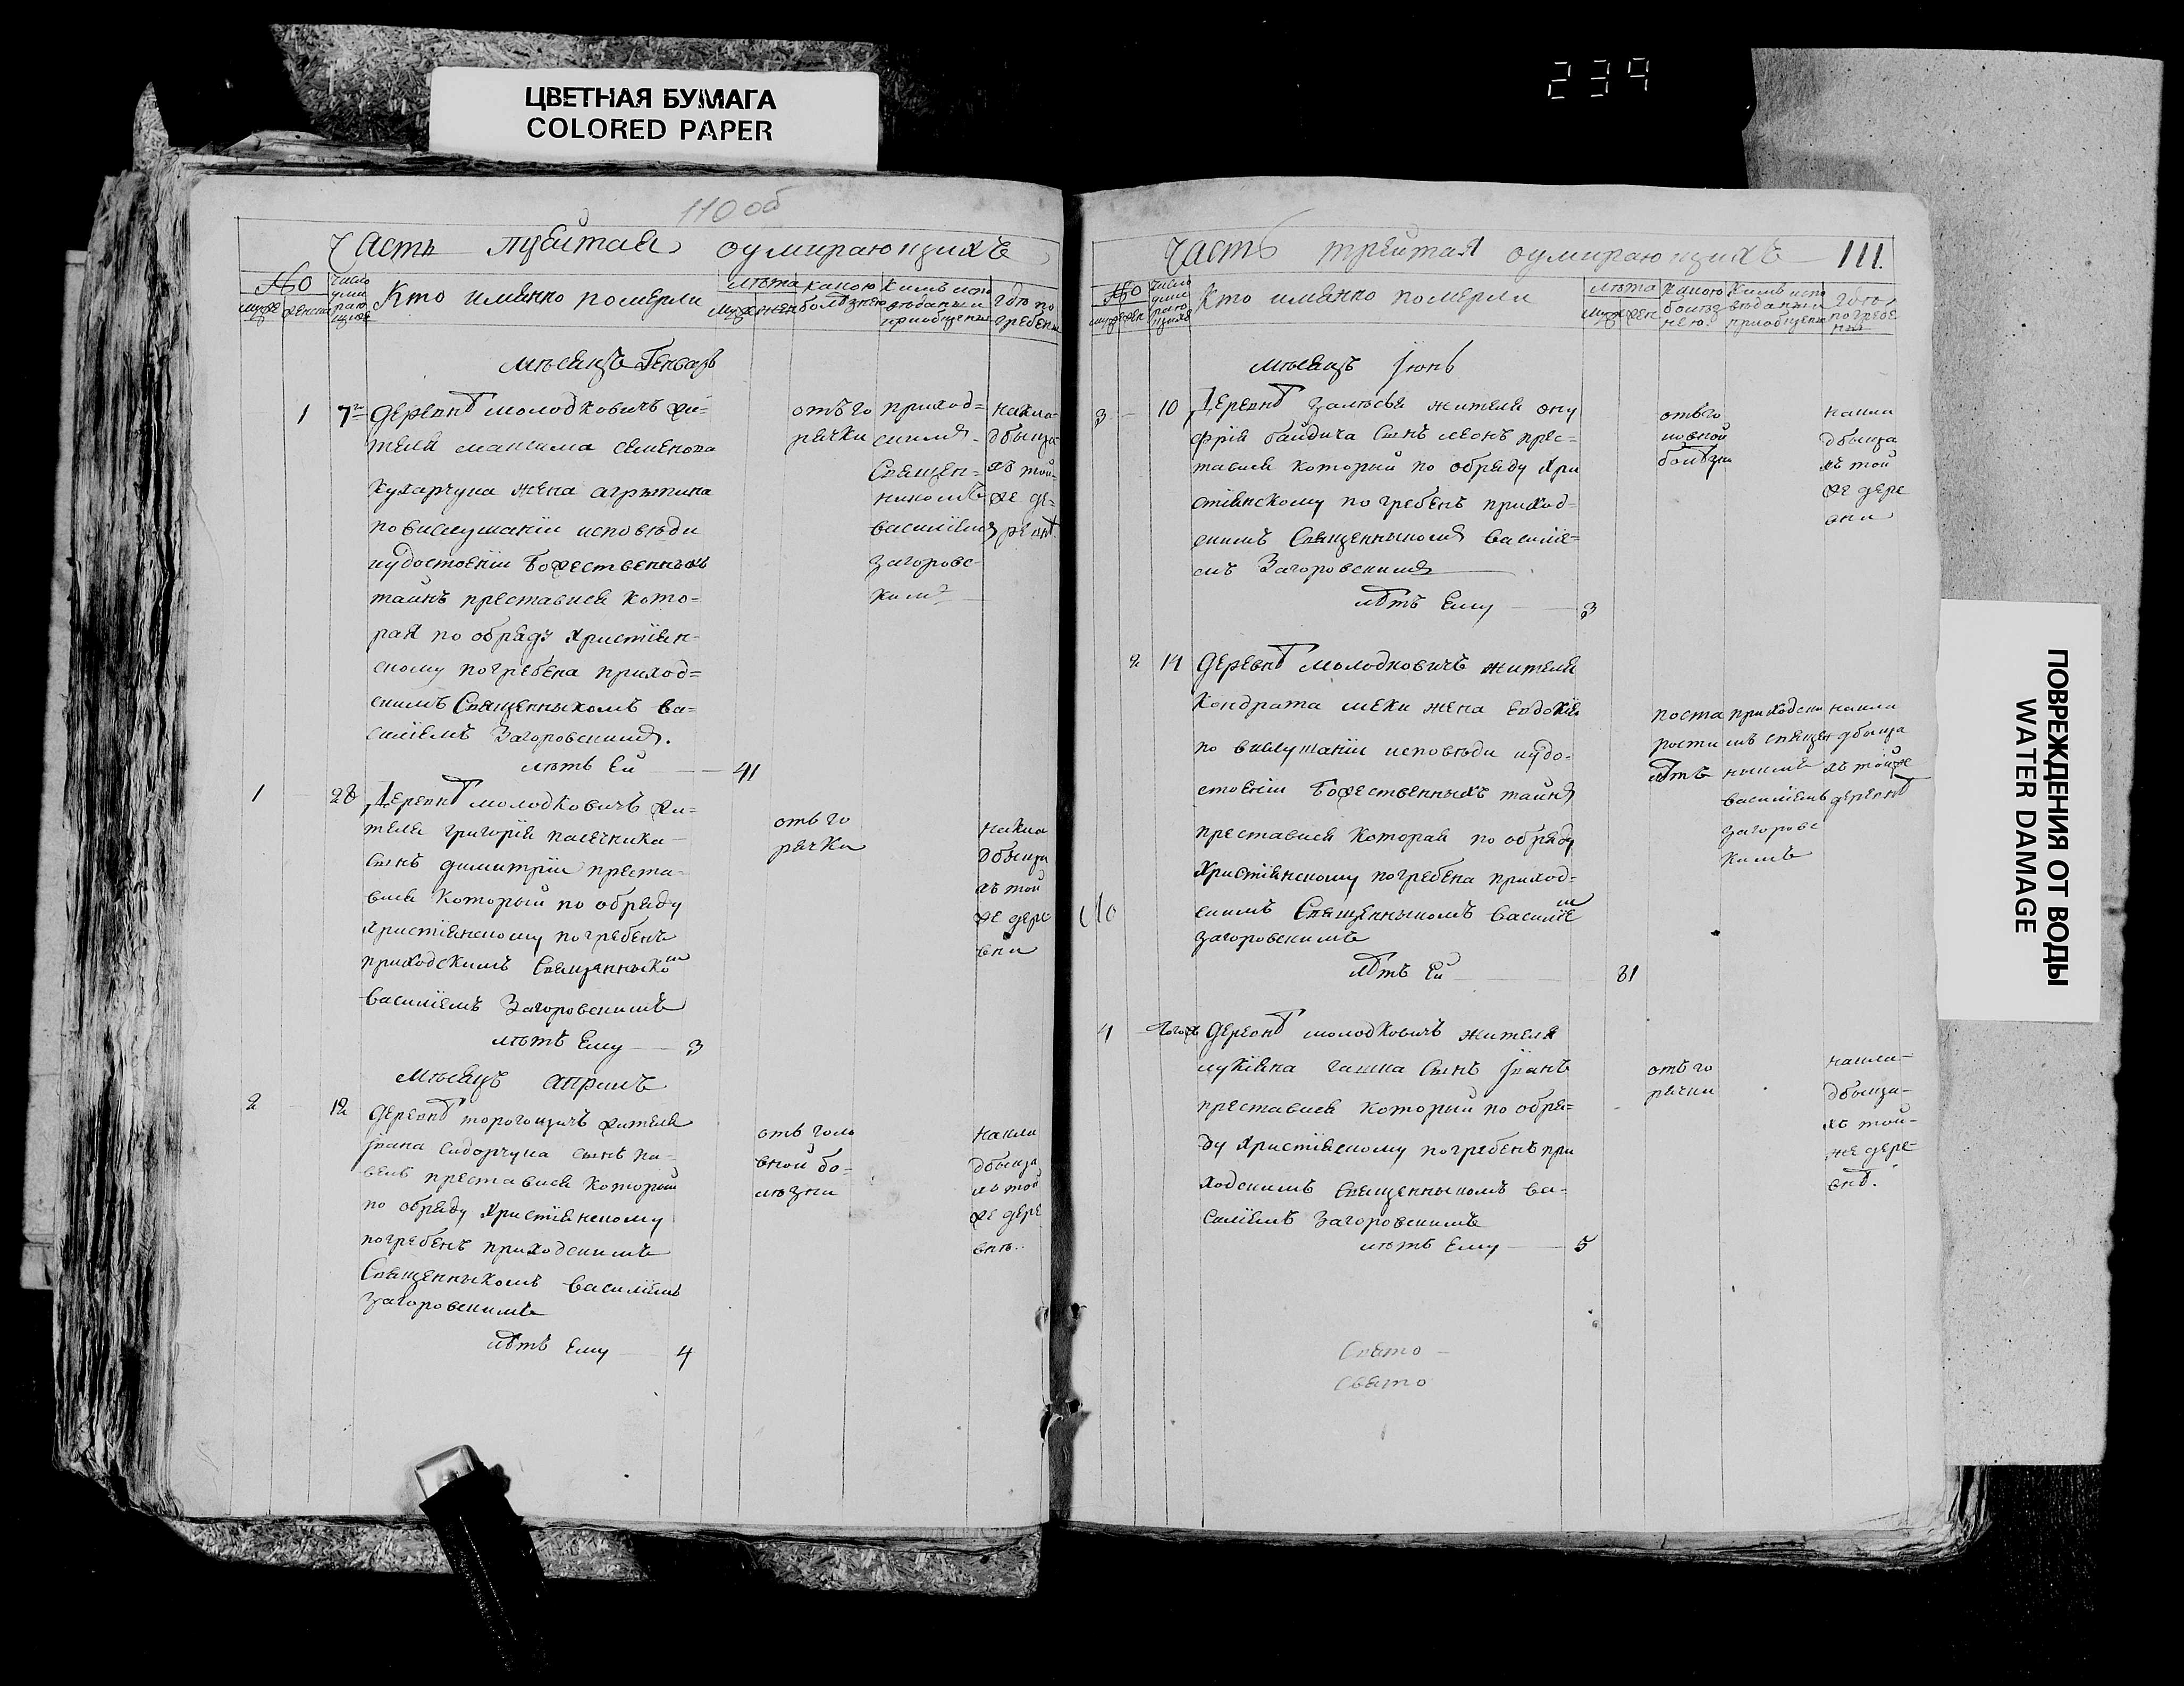 ЦВЕТНАЯ БУМАГА
COLORED PAPER
239
110 об
Часть третая оумирающихъ
№
мужес
женска
число
уми
раю
щихъ
Кто имянно померли
лѣта
муж
жен
какою
болѣзнею
Кимъ испо
вѣданы и
приобщены
гдѣ по
гребены
мѣсяцъ Генварь
1 7 деревнѣ молодковичъ жи=
теля максима семенова
кухарчука жена агрыпина
по вислушаніи исповѣди
иудостоеніи Божественныхъ
таинъ преставися кото=
рая по обряду христіян=
скому погребена приход=
скимъ Священныкомъ ва=
силіемъ Загоровскимъ.
лѣтъ Ей — 41
отъ го
рячки
приход=
скимъ
Священ=
никомъ
василіемъ
загоровс
кимъ
накла
дбыща
хъ той
же де=
ревнѣ.
1 28 Деревнѣ молодковичъ жи=
теля григорія пасѣчника
сынъ димитрій преста=
вися который по обряду
христіянскому погребенъ
приходскимъ Священныком
василіемъ Загоровскимъ
лѣтъ Ему — 3
отъ го
рячки
накла
дбыща
хъ той
же дере
вни
Мѣсяцъ априлъ
2 12 деревнѣ торогощичъ жителя
Іоана сидорчука сынъ па=
велъ преставися который
по обряду христіянскому
погребенъ приходскимъ
Священныкомъ василіемъ
загоровскимъ
лѣтъ Ему — 4
отъ голо
вной бо=
лѣзни
накла
дбыща
хъ той
же дере
внѣ..
Часть третая оумирающихъ 111.
№
муже
жен
число
уми
раю
щихъ
Кто имянно померли
лѣта
муж
жен
какою
болѣз
нею.
Кимъ испо
вѣданы и
приобщены
гдѣ
погребе
ны
мѣсяцъ Іюнь
3 10 Деревнѣ залѣсья жителя ону
фрія байдича сынъ леонъ прес=
тавися который по обряду хри
стіянскому погребенъ приход=
скимъ Священныкомъ василіе=
мъ Загоровскимъ
лѣтъ Ему — 3
отъ го
ловной
болѣзни
накла
дбыща
хъ той
же дере
вни
2 14 деревнѣ молодковичъ жителя
Кондрата меки жена евдокія
по вислушаніи исповѣди иудо=
стоеніи Божественныхъ таинъ
преставися которая по обряду
христіянскому погребена приход=
скимъ Священныкомъ василіем
загоровскимъ
лѣтъ Ей 81
поста
рости
лѣтъ
приходски
мъ священ
ныкмъ
василіемъ
загоровс
кимъ
накла
дбыща
хъ тойже
деревнѣ
4 — тогож деревнѣ молодковичъ жителя
лукіяна гашка сынъ Іоанъ
преставися который по обря=
ду христіянскому погребенъ при
ходскимъ Священныкомъ ва=
силіемъ загоровскимъ
лѣтъ Ему — 5
отъ го
рячки
накла=
дбыща=
хъ той=
же дере=
внѣ.
Свято
Свято
ПОВРЕЖДЕНИЯ ОТ ВОДЫ
WATER DAMAGE